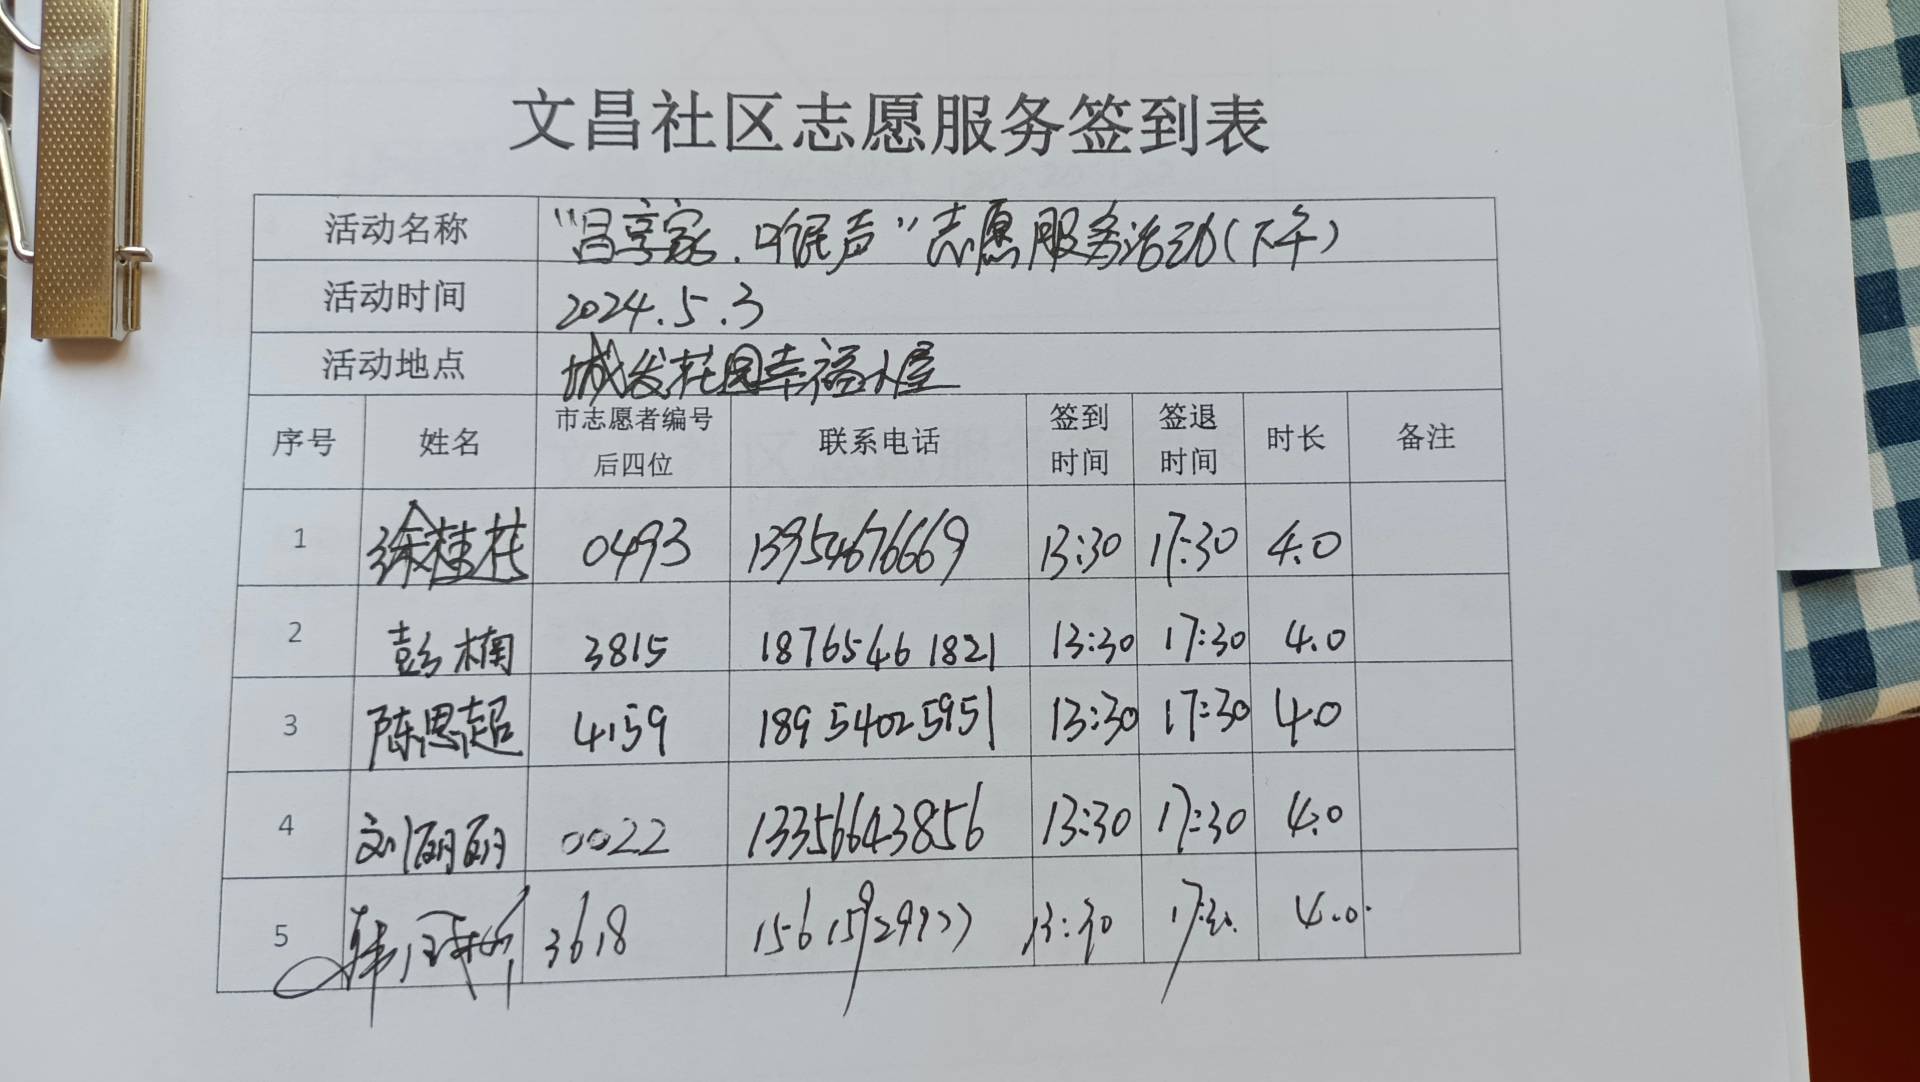 文昌社区志愿服务签到表
活动名称 “昌享家.听民声”志愿服务活动(下午)
活动时间 2024.5.3
活动地点 城发花园幸福小屋
序号 姓名 市志愿者编号后四位 联系电话 签到时间 签退时间 时长 备注
1 徐桂花 0493 13954676669 13:30 17:30 4.0
2 彭楠 3815 18765461821 13:30 17:30 4.0
3 陈思超 4159 18954025951 13:30 17:30 4.0
4 刘丽丽 0022 13356643856 13:30 17:30 4.0
5 3618 13:30 17:30 4.0